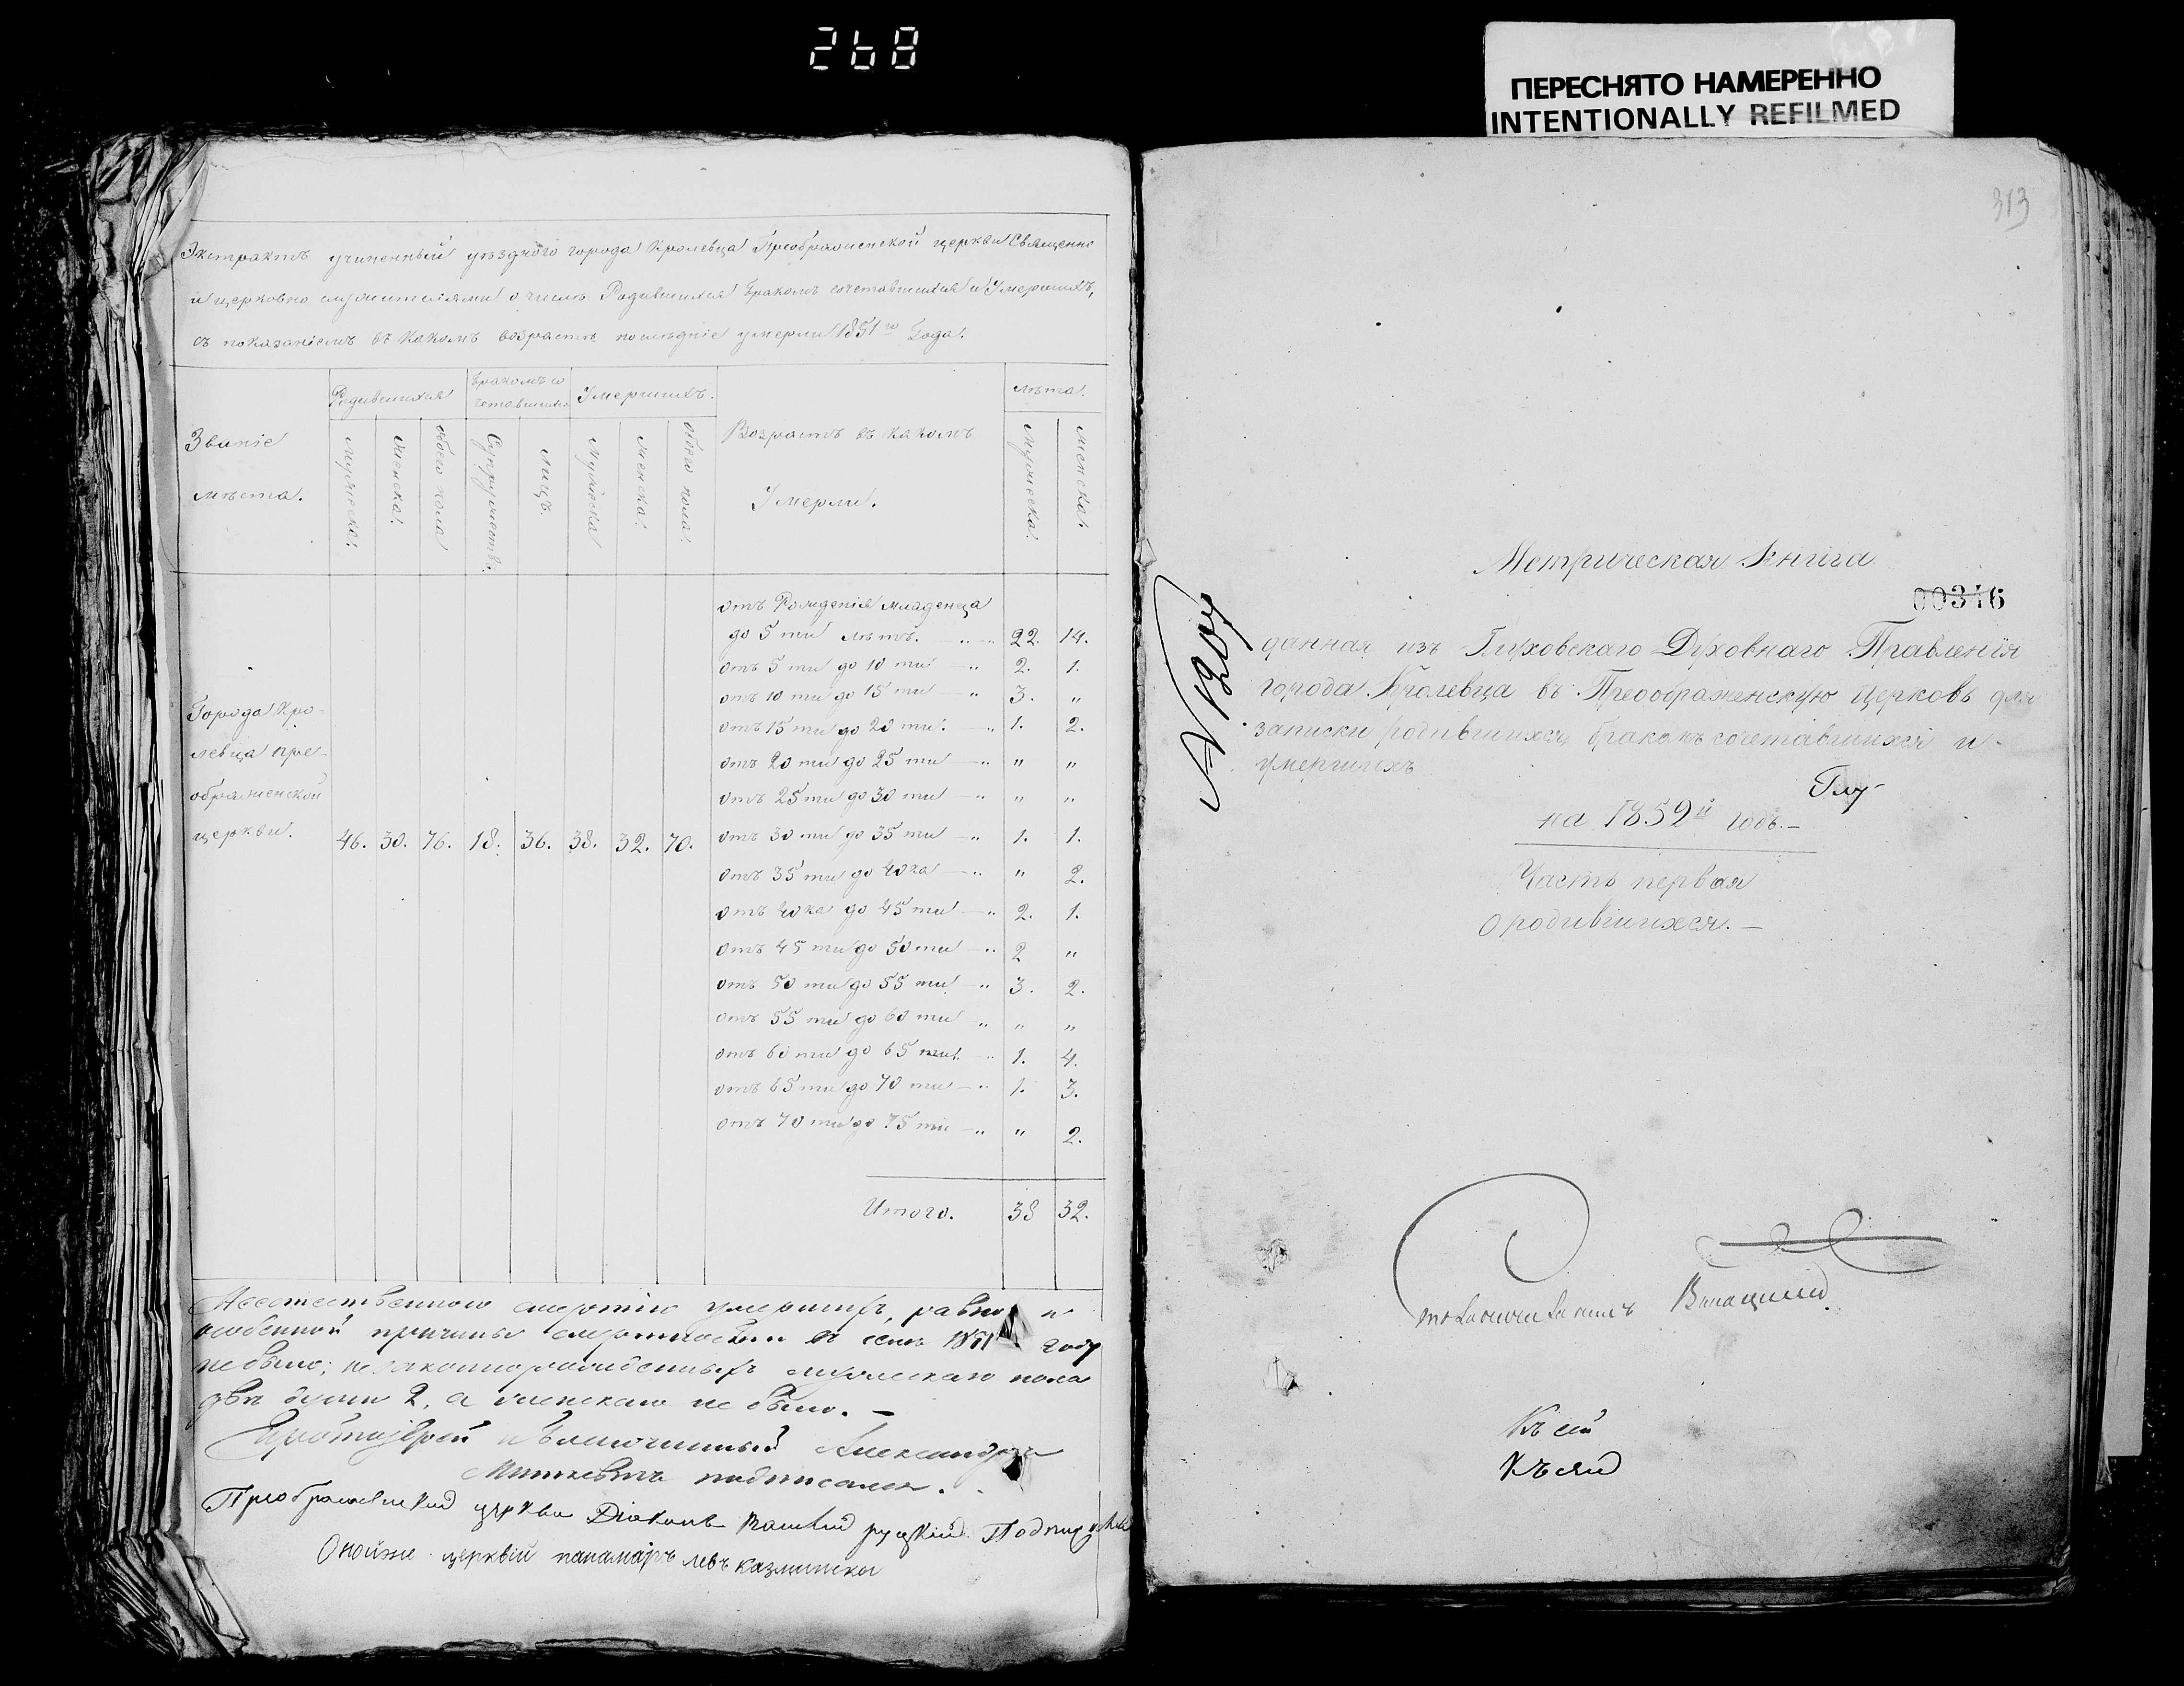 268
ПЕРЕСНЯТО НАМЕРЕННО
INTENTIONALLY REFILMED
Экстрактъ учиненный уѣзднаго города Кролевца Преображенской церкви Священно
и церковно служителями о числѣ Родившихся Бракомъ сочетавшихся и Умершихъ,
съ показаніемъ въ какомъ возрастѣ послѣдніе умерли 1851го Года.
Званіе
мѣста.
Родившихся
Бракомъ со
четавшихся
Умершихъ.
Возрастъ въ какомъ
Умерли.
лѣта.
Мужеска.
Женска.
обоего пола
Супружествъ.
Лицъ.
Мужеска
Женска.
обоего пола.
Мужеска.
Женска.
Города Кро-
левца Пре-
ображенской
церкви.
46. 30. 76. 18. 36. 38. 32. 70.
отъ Рожденія младенца
до 5 ти лѣтъ. — „ 22. 14.
отъ 5 ти до 10 ти — „ 2. 1.
отъ 10 ти до 15 ти — „ 3. „
отъ 15 ти до 20 ти. — „ 1. 2.
отъ 20 ти до 25 ти — „ „ „
отъ 25 ти до 30 ти — „ „ „
отъ 30 ти до 35 ти — „ 1. 1.
отъ 35 ти до 40ка — „ „ 2.
отъ 40ка до 45 ти — „ 2. 1.
отъ 45 ти до 50 ти — „ 2 „
отъ 50 ти до 55 ти — „ 3. 2.
отъ 55 ти до 60 ти — „ „ „
отъ 60 ти до 65 ти. — „ 1. 4.
отъ 65 ти до 70 ти — „ 1. 3.
отъ 70 ти до 75 ти — „ „ 2.
Итого. 38 32.
Неестественною смертію умершихъ, равно и
особенной причины смертности въ семъ 1851 году
не было; незаконнорожденныхъ мужескаго пола
двѣ души 2, а женскаго не было. —
Протоіерей и Благочинный Александръ
подписалъ.
Преображенской церкви Діаконъ руцкій Подписался
Оной же церквй панамарь левъ
313
Метрическая Книга
00346
№ 1204
данная изъ Глуховскаго Духовнаго Правленія
города Кролевца въ Преображенскую Церковь для
записки родившихся, бракомъ сочетавшихся и
умершихъ
Глу-
на 1852й годъ. —
Часть первая
о родившихся. —
Къ сей
Къ сей